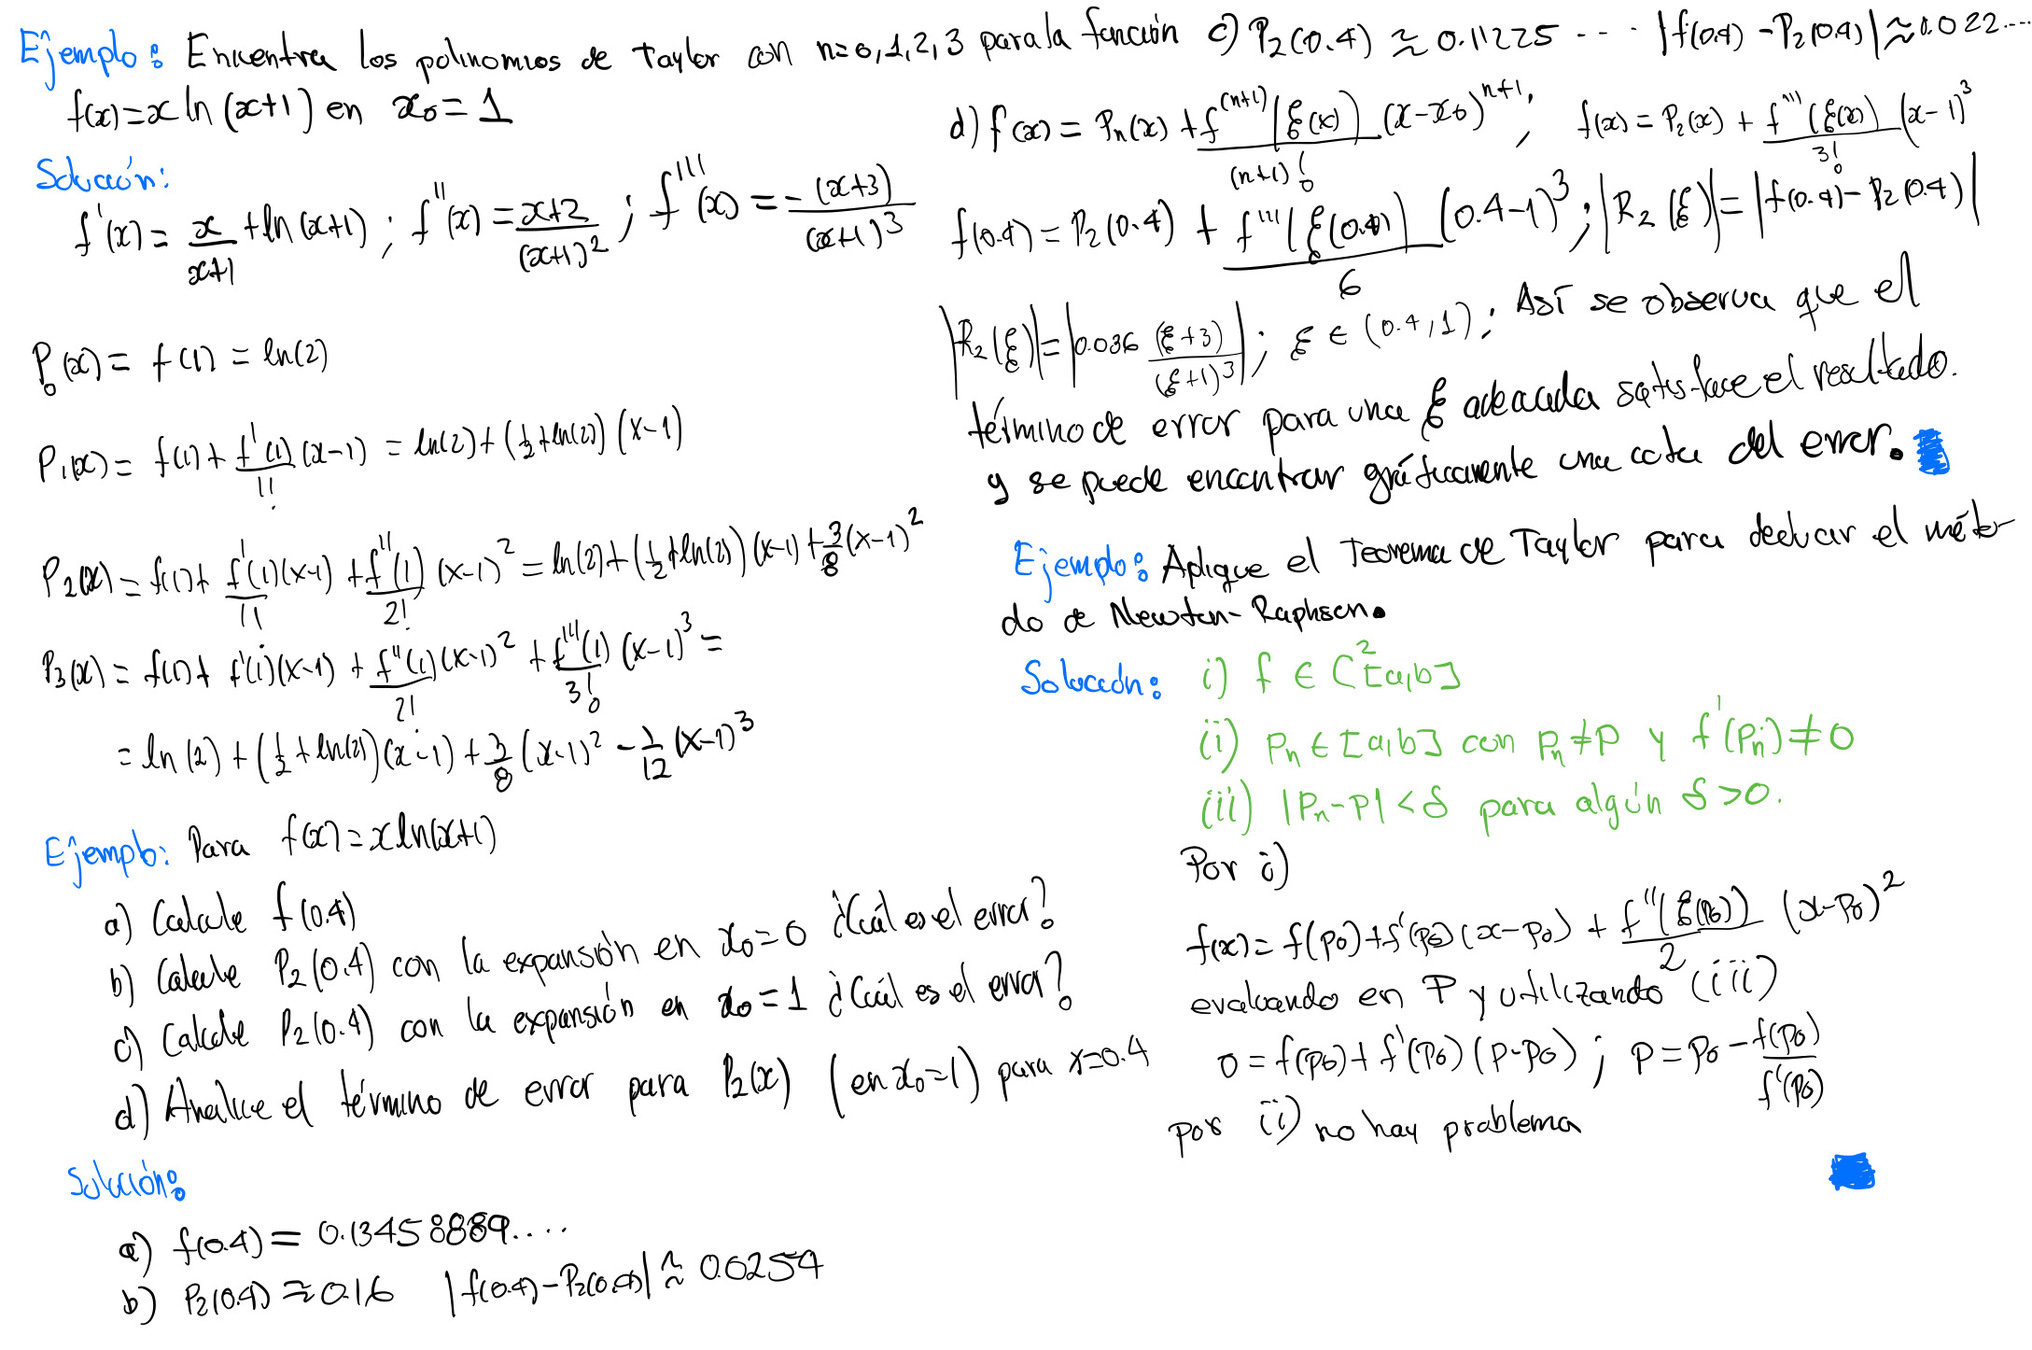 Ejemplo: Encuentra los polinomios de Taylor con n=0,1,2,3 para la función
f(x)=x ln(x+1) en x₀=1
Solución:
f'(x)= x/(x+1) + ln(x+1) ; f''(x)= (x+2)/(x+1)² ; f'''(x) = -(x+3)/(x+1)³
P₀(x)= f(1) = ln(2)
P₁(x)= f(1)+ f'(1)/1! (x-1) = ln(2)+(1/2+ln(2))(x-1)
P₂(x)= f(1)+ f'(1)/1! (x-1) + f''(1)/2! (x-1)² = ln(2)+(1/2+ln(2))(x-1)+3/8(x-1)²
P₃(x) = f(1)+ f'(1)(x-1) + f''(1)/2! (x-1)² + f'''(1)/3! (x-1)³ =
= ln(2)+(1/2+ln(2))(x-1)+3/8(x-1)² - 1/12(x-1)³
Ejemplo: Para f(x)=x ln(x+1)
a) Calcule f(0.4)
b) Calcule P₂(0.4) con la expansión en x₀=0 ¿Cuál es el error?
c) Calcule P₂(0.4) con la expansión en x₀=1 ¿Cuál es el error?
d) Analice el término de error para P₂(x) (en x₀=1) para x=0.4
Solución:
a) f(0.4)= 0.13458889....
b) P₂(0.4) ≈ 0.16 |f(0.4)-P₂(0.4)| ≈ 0.0254
c) P₂(0.4) ≈ 0.11225 ... |f(0.4)-P₂(0.4)|≈0.022...
d) f(x) = Pₙ(x) + f⁽ⁿ⁺¹⁾(ξ(x))/(n+1)! (x-x₀)ⁿ⁺¹; f(x)= P₂(x) + f'''(ξ(x))/3! (x-1)³
f(0.4) = P₂(0.4) + f'''(ξ(0.4))/6 (0.4-1)³; |R₂(ξ)|=|f(0.4)-P₂(0.4)|
|R₂(ξ)|=|0.036 (ξ+3)/(ξ+1)³|; ξ ∈ (0.4,1); Así se observa que el
término de error para una ξ adecuada satisface el resultado.
y se puede encontrar gráficamente una cota del error.
Ejemplo: Aplique el Teorema de Taylor para deducir el méto-
do de Newton-Raphson.
Solución: i) f ∈ C²[a,b]
ii) pₙ ∈ [a,b] con pₙ≠p y f'(pₙ)≠0
iii) |pₙ-p|<δ para algún δ>0.
Por i)
f(x)= f(p₀)+f'(p₀)(x-p₀) + f''(ξ(p₀))/2 (x-p₀)²
evaluando en P y utilizando (iii)
0=f(p₀)+f'(p₀)(p-p₀) ; p=p₀ - f(p₀)/f'(p₀)
por ii) no hay problema